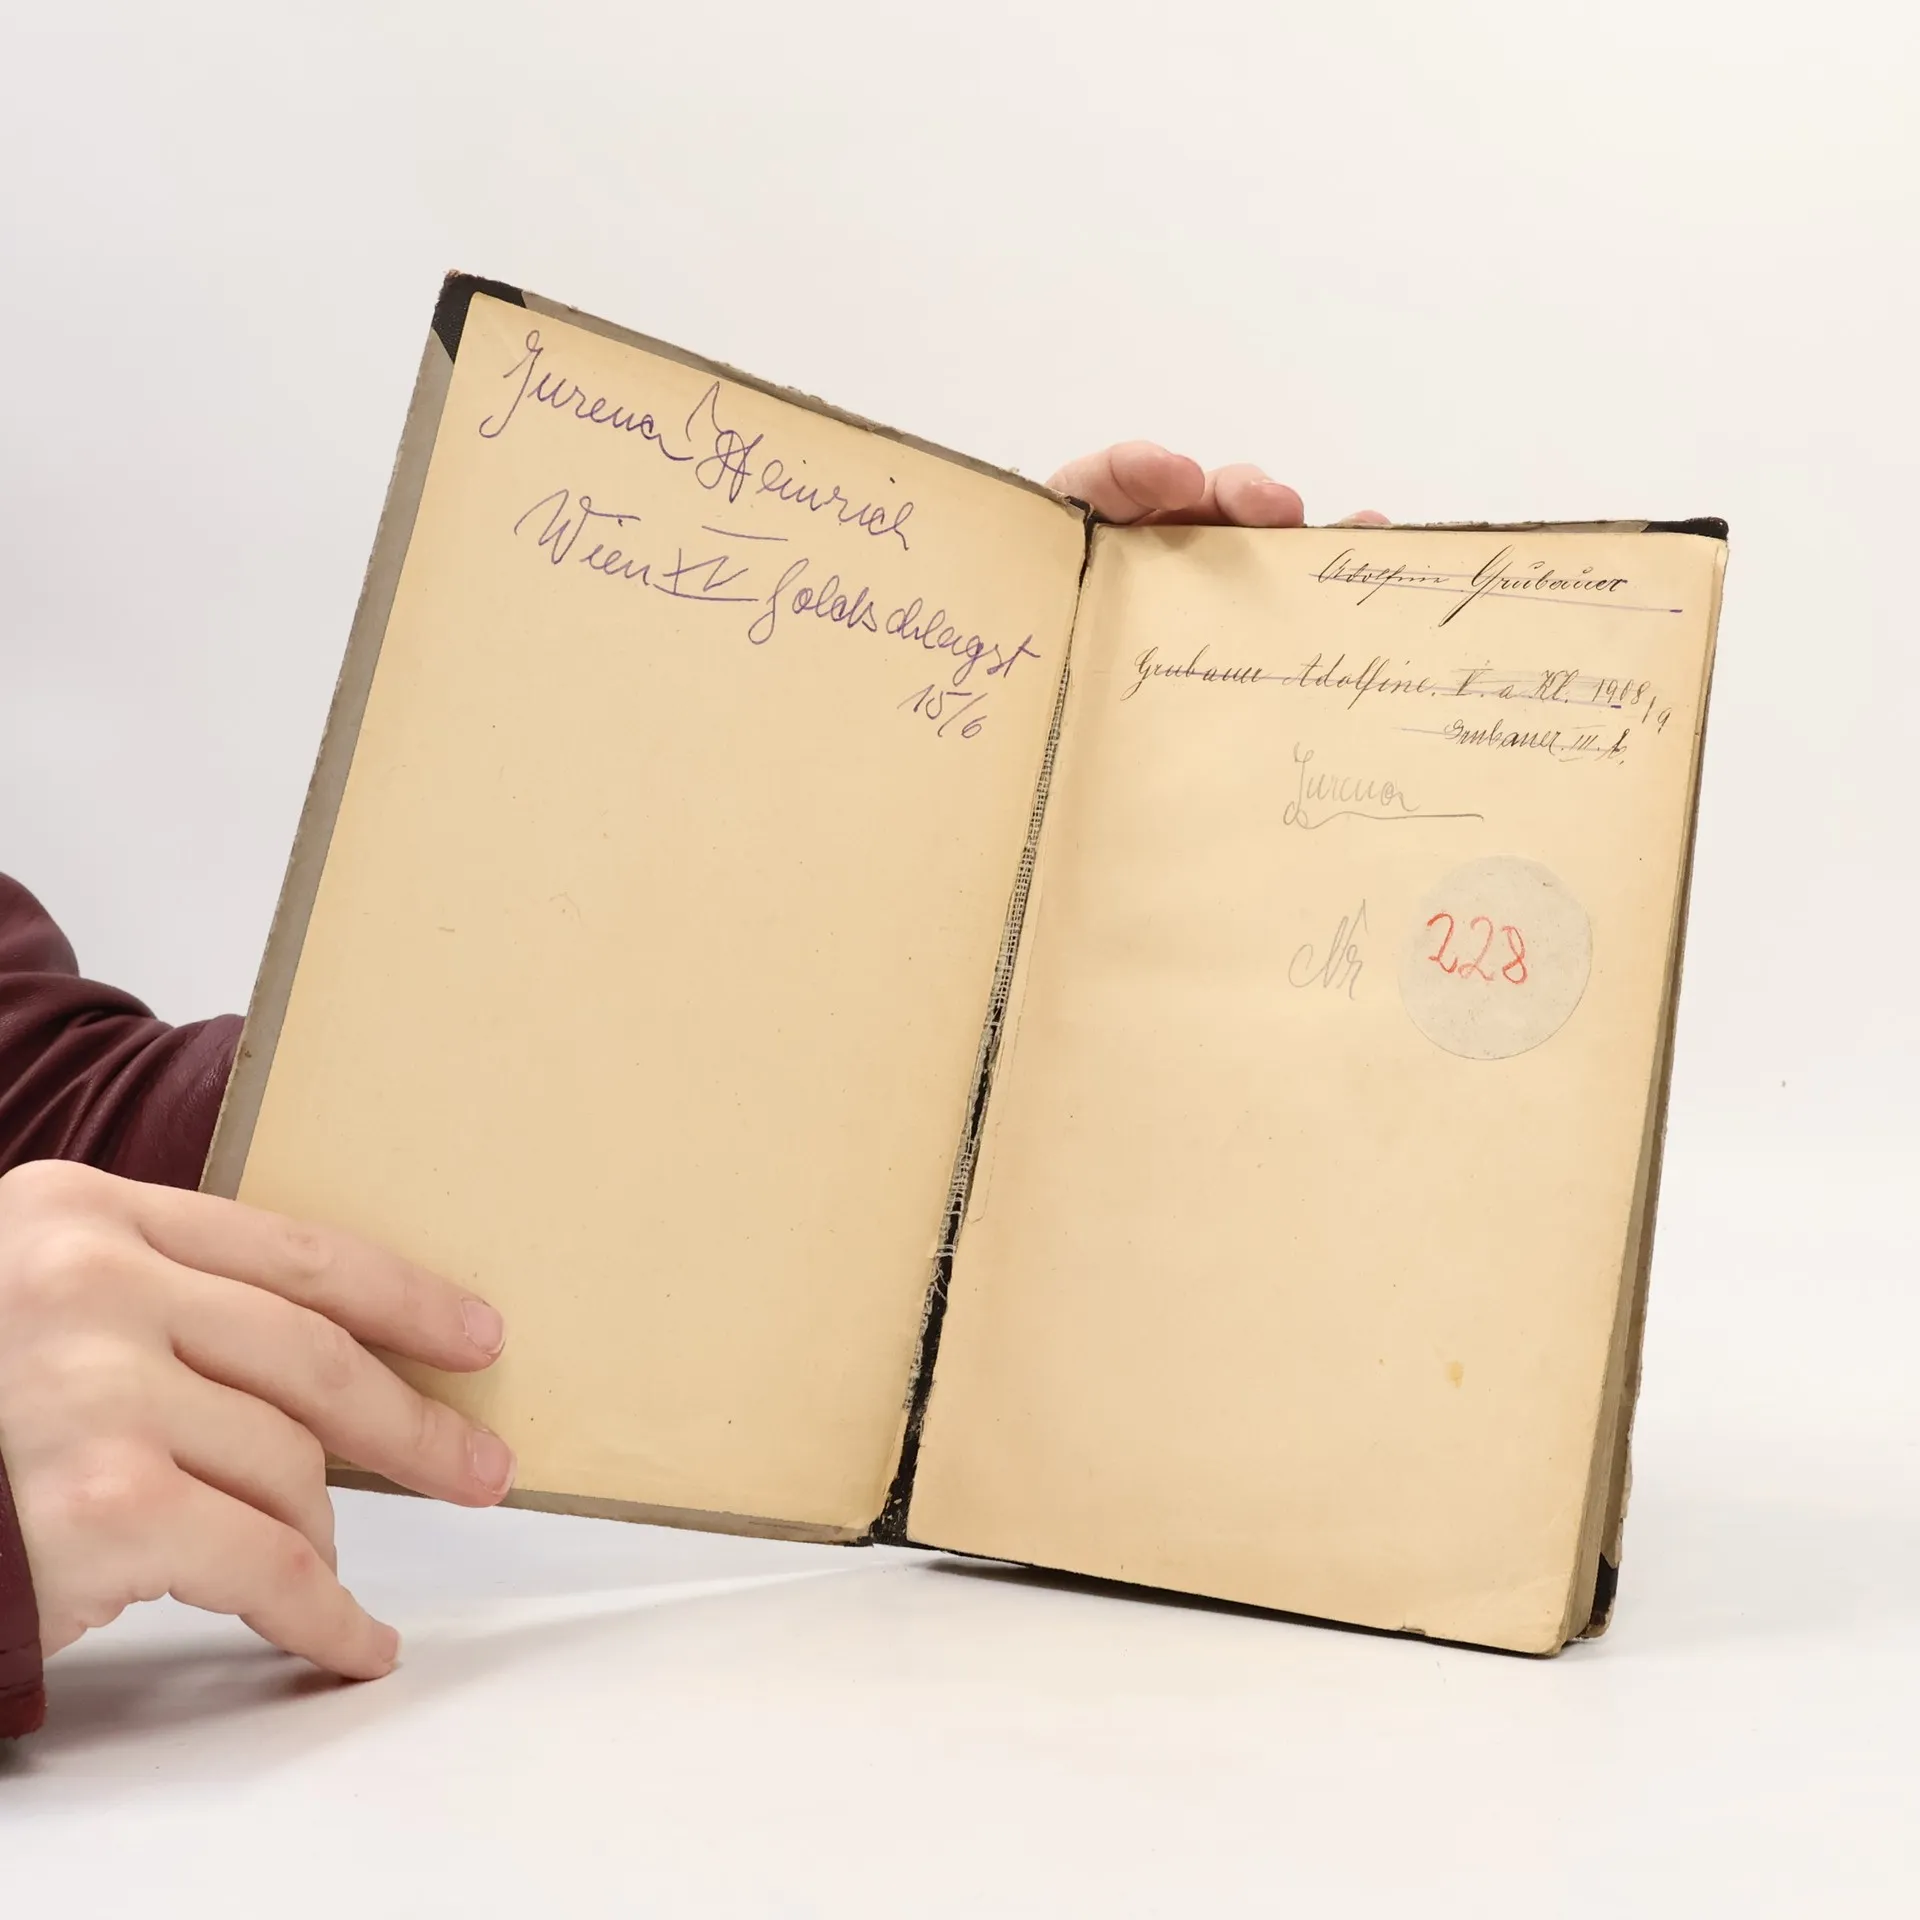 Jurena Heinrich
Wien XV Goldschlagst
15/6
Adolfine Grubauer
Grubauer Adolfine. V. a Kl. 1908/9
Grubauer III. b.
Jurena
Nr 228